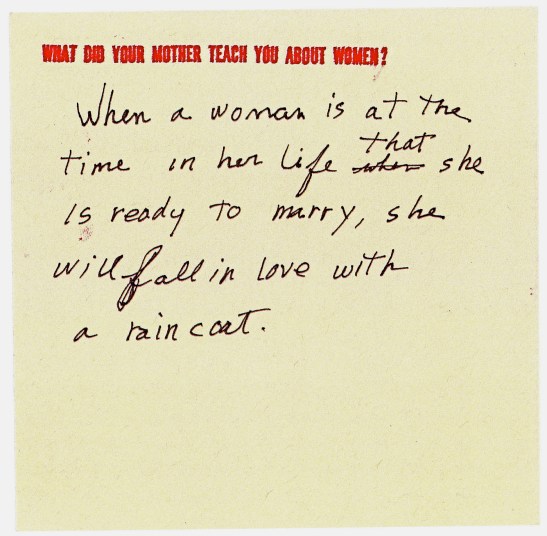 WHAT DID YOUR MOTHER TEACH YOU ABOUT WOMEN?
When a woman is at the
time in her life ~~when~~ that she
is ready to marry, she
will fall in love with
a raincoat.